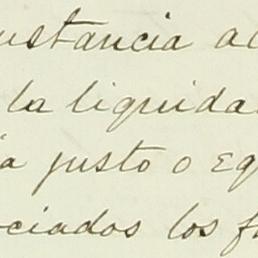 ustancia ac
la liquida
a justo o eq
ociados los f